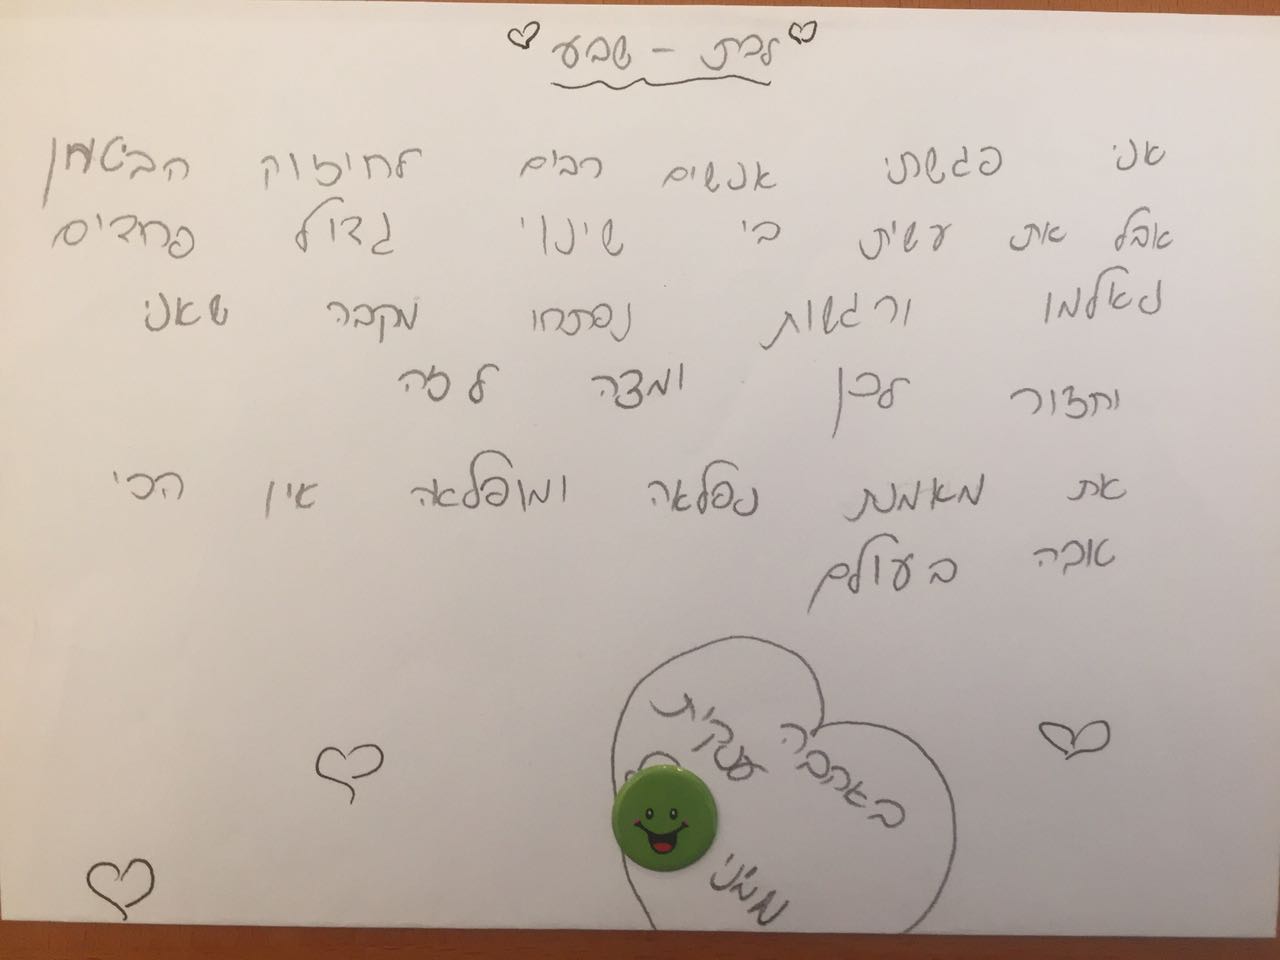 לבת - שבע
אני פגשתי אנשים רבים לחיזוק הביטחון
אבל את עשית בי שינוי גדול פחדים
נאלמו ורגשות נפתחו מקבה שאני
ותצור לכן ומצה ל זה
את מאמנת נפלאה ומופלאה אין הכי
טובה בעולם
באהבה
ענקית
ממני